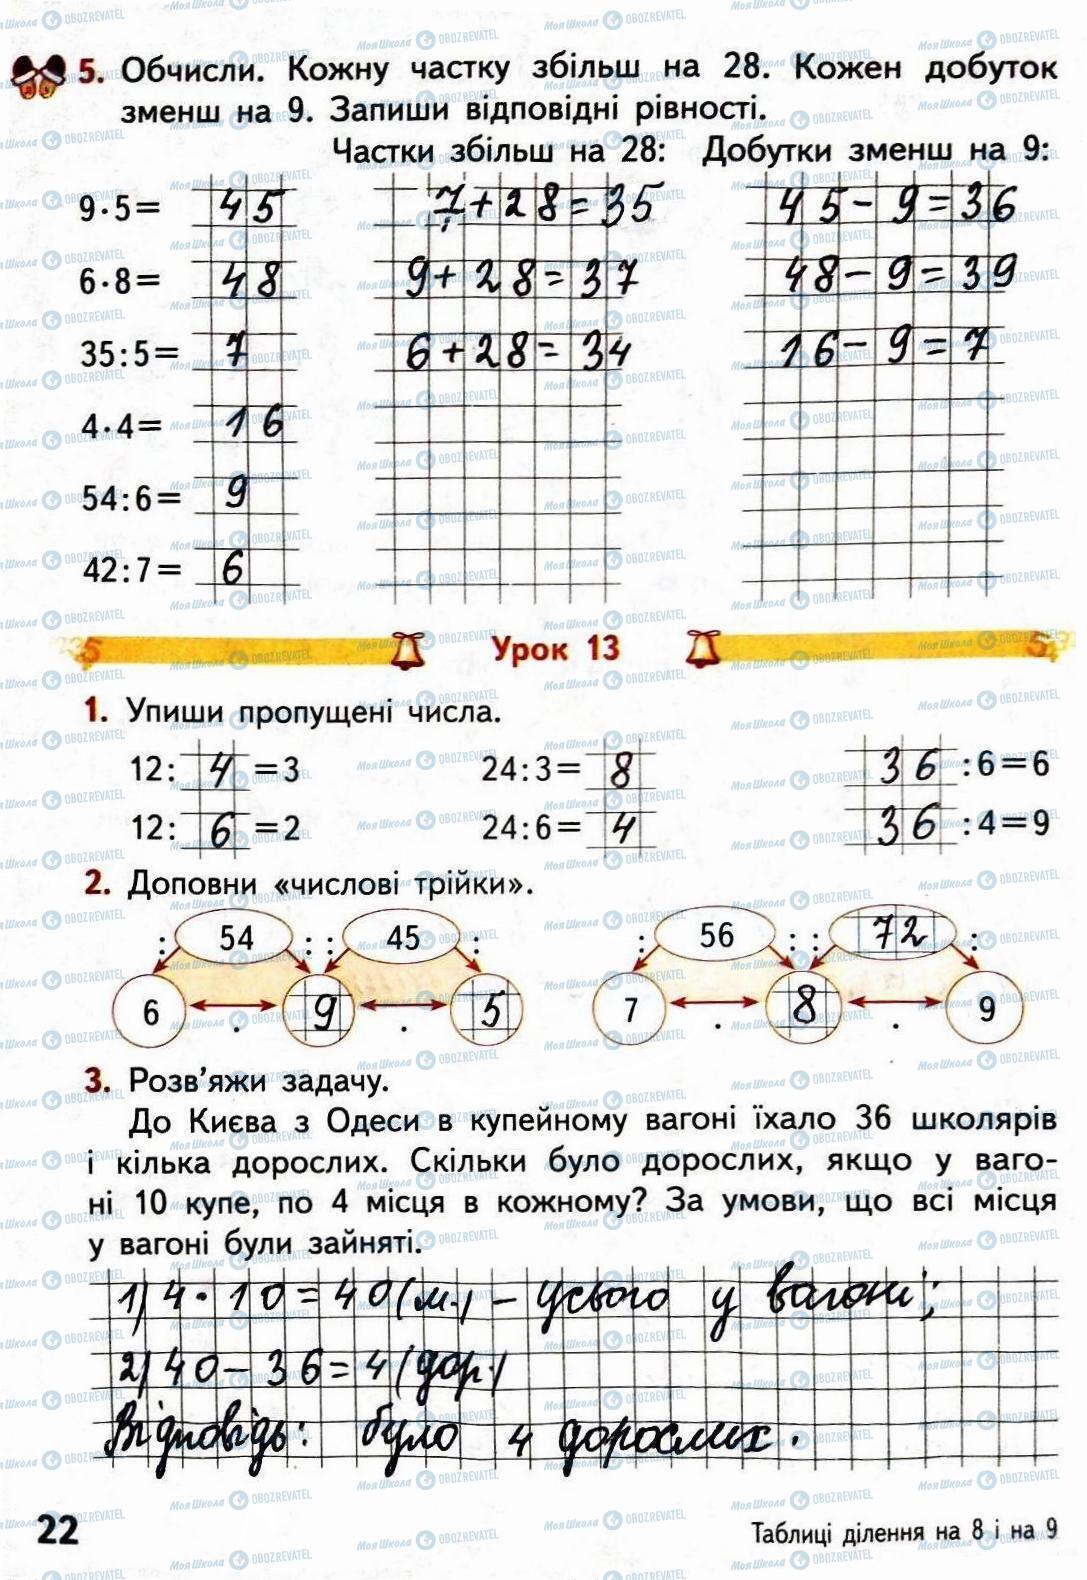 5. Обчисли. Кожну частку збільш на 28. Кожен добуток
зменш на 9. Запиши відповідні рівності.
Частки збільш на 28: Добутки зменш на 9:
9·5= 45 7+28=35 45-9=36
6·8= 48 9+28=37 48-9=39
35:5= 7 6+28=34 16-9=7
4·4= 16
54:6= 9
42:7= 6
Урок 13
1. Упиши пропущені числа.
12: 4 =3 24:3= 8 36 :6=6
12: 6 =2 24:6= 4 36 :4=9
2. Доповни «числові трійки».
: 54 : : 45 : : 56 : : 72 :
6 · 9 · 5 7 · 8 · 9
3. Розв'яжи задачу.
До Києва з Одеси в купейному вагоні їхало 36 школярів
і кілька дорослих. Скільки було дорослих, якщо у ваго-
ні 10 купе, по 4 місця в кожному? За умови, що всі місця
у вагоні були зайняті.
1) 4·10=40(м.) – усього у вагоні;
2) 40-36=4(дор.)
Відповідь: було 4 дорослих.
22
Таблиці ділення на 8 і на 9
МояШкола OBOZREVATEL